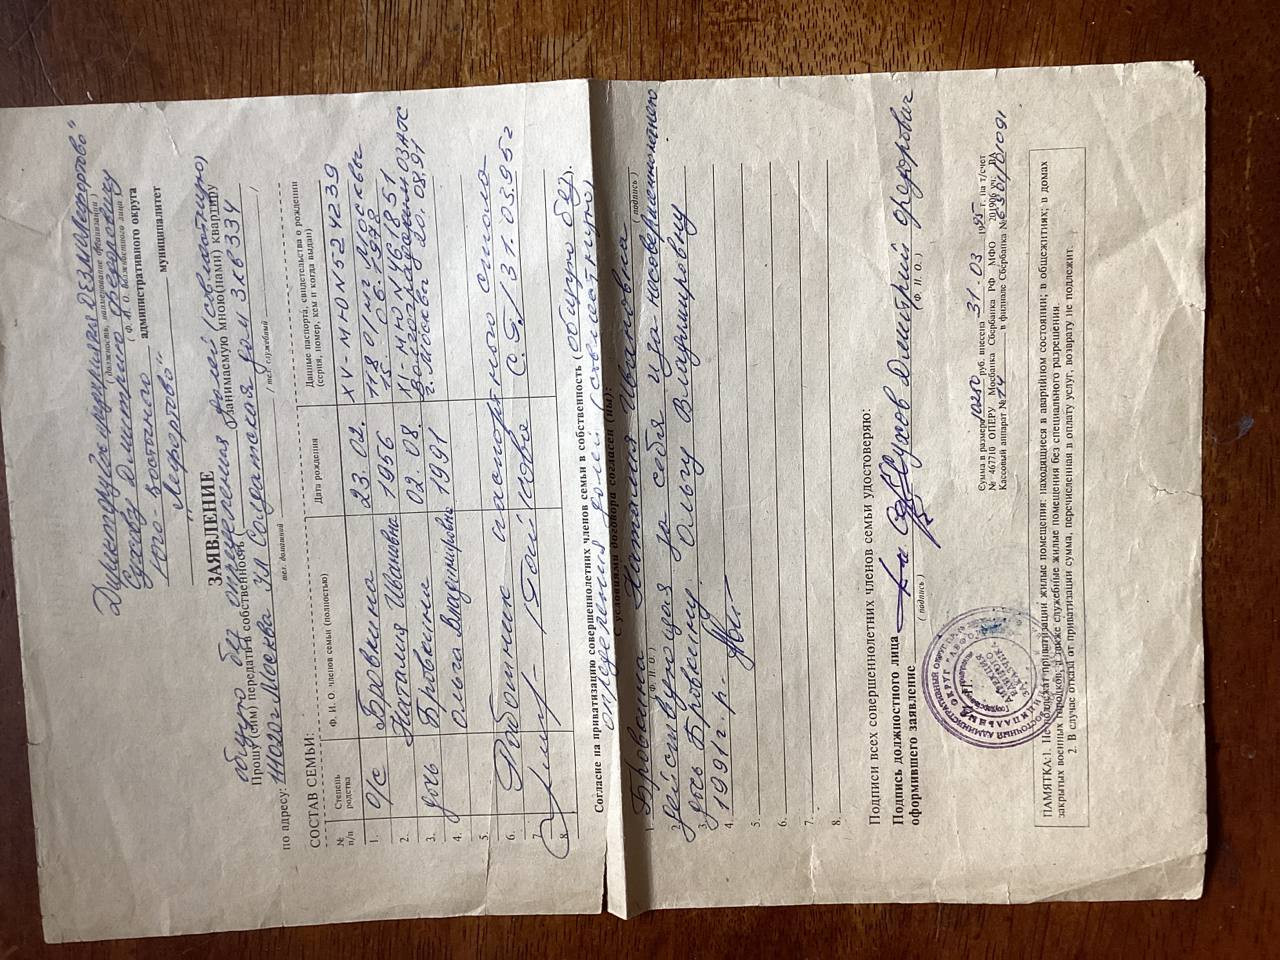 Директору
( должность, наименование организации )
Сухову Дмитрию Федоровичу
( Ф. И. О. должностного лица )
Юго-Восточного административного округа
"Лефортово" муниципалитет
ЗАЯВЛЕНИЕ
общую без определения долей (совместную)
Прошу (сим) передать в собственность занимаемую мною(нами) квартиру
по адресу: Москва ул Солдатская дом 3 кв 334
тел. домашний / тел. служебный /
СОСТАВ СЕМЬИ:
№ п/п Степень родства Ф. И. О. членов семьи (полностью) Дата рождения Данные паспорта, свидетельства о рождении (серия, номер, кем и когда выдан)
1. о/с Бровкина 23. 02. XV-МЮ N 524239
2. Наталия Ивановна 1956 118 О/м г. Москвы
15. 06. 1978
3. дочь Бровкина 02. 08. VI-МЮ N 461851
4. Ольга Владимировна 1991 Волгоградским ОЗАГС
г. Москвы 20. 08. 91
5.
6. Работник паспортного стола
7. 31. 03. 95г
8.
Согласие на приватизацию совершеннолетних членов семьи в собственность (общую без
определения долей (совместную).
С условиями договора согласен (ны):
1. Бровкина Наталия Ивановна
( Ф. И. О. ) ( подпись )
2. действующая за себя и за несовершеннолетнюю
3. дочь Бровкину Ольгу Владимировну
4. 1991 г. р.
5.
6.
7.
8.
Подписи всех совершеннолетних членов семьи удостоверяю:
Подпись должностного лица Сухов Дмитрий Федорович
оформившего заявление ( подпись ) ( Ф. И. О. )
Сумма в размере 10250 руб. внесена 31. 03 1995 г. (на т/счет
№ 467710 ОПЕРУ Мосбанка Сбербанка РФ МФО 201906 уч.
Кассовый аппарат № в филиале Сбербанка №
ПАМЯТКА:1. Не подлежат приватизации жилые помещения: находящиеся в аварийном состоянии; в общежитиях; в домах
закрытых военных городков, а также служебные жилые помещения без специального разрешения.
2. В случае отказа от приватизации сумма, перечисленная в оплату услуг, возврату не подлежит.